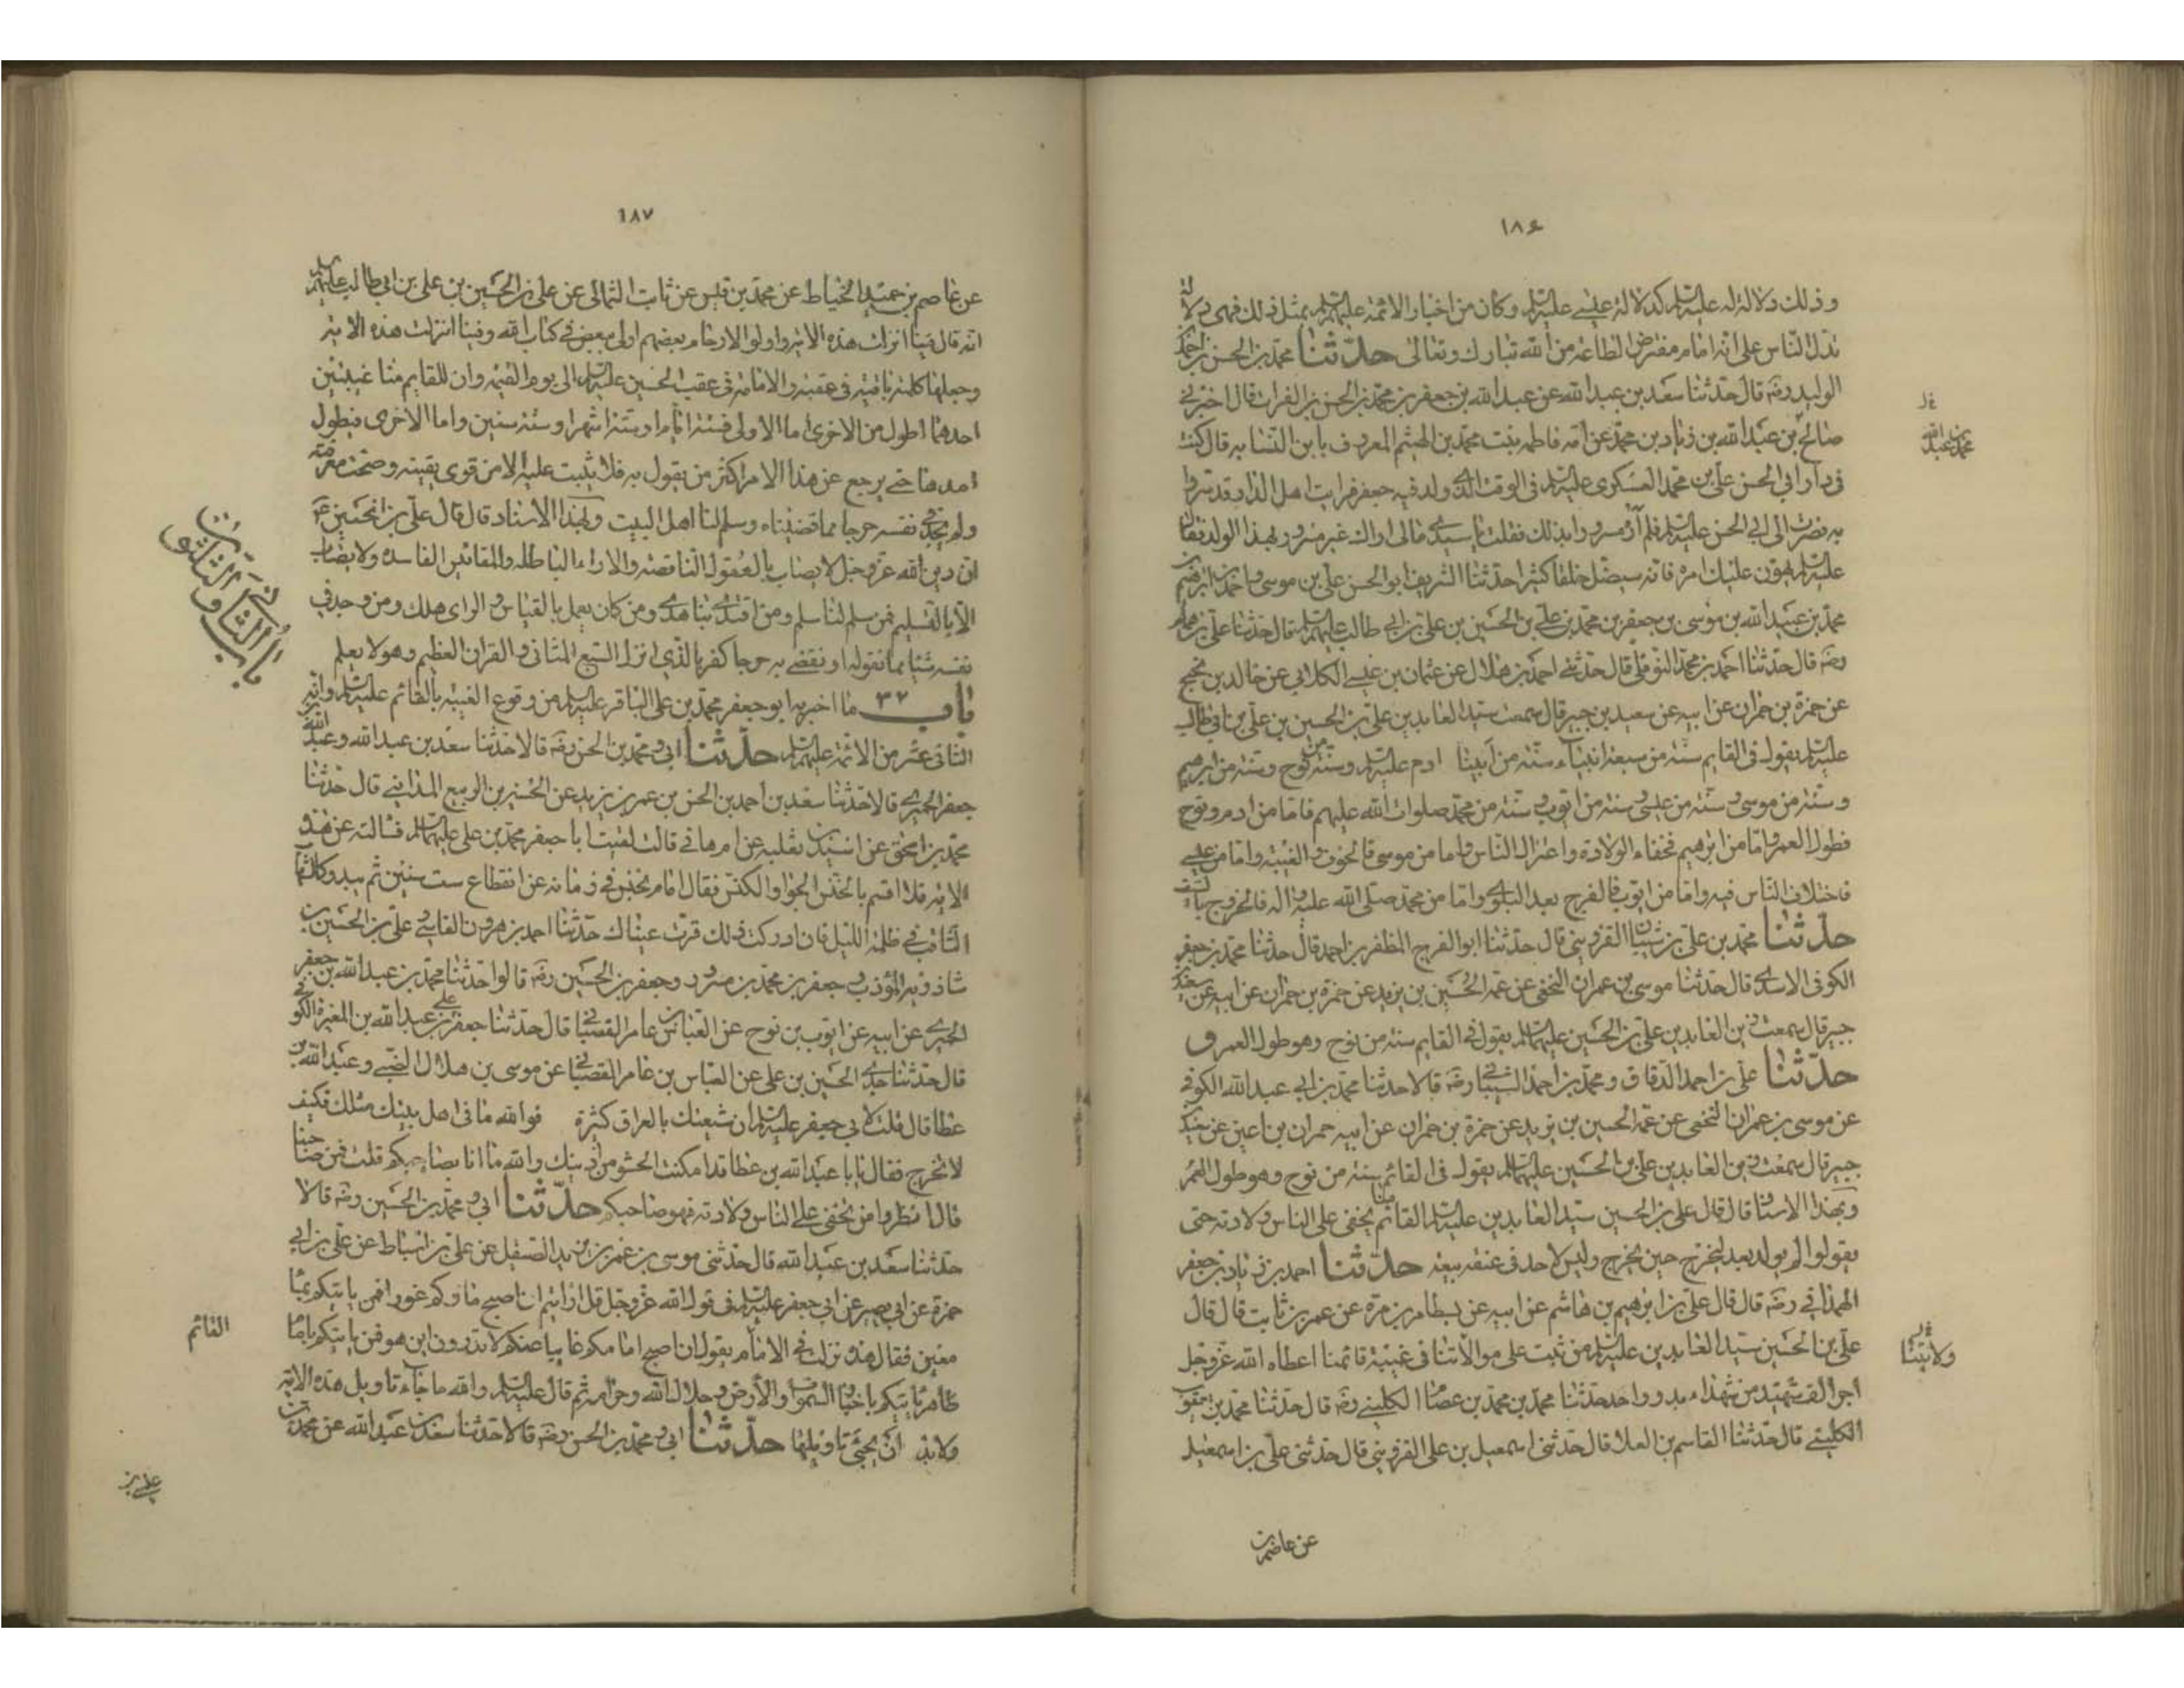 ١٨۶
وذلك دلالة له عليه السلم كدلالة عيسى عليه السلم وكان من اخبار الائمة عليهم السلم بمثل ذلك فهى دلالة
تدل الناس على انه امام مفترض الطاعة من الله تبارك وتعالى حدثنا محمد بن الحسن بن احمد
الوليد رضه قال حدثنا سعد بن عبد الله عن عبد الله بن جعفر بن محمد بن الحسن بن الفرات قال اخبرنى
محمد بن عبد الله
صالح بن عبد الله بن زياد بن محمد عن امه فاطمه بنت محمد بن الهيثم المعروف بابن النسابه قال كنت
فى دار ابى الحسن على بن محمد العسكرى عليه السلم فى الوقت الذى ولد فيه جعفر فرايت اهل الدار قد سروا
به فصرت الى ابى الحسن عليه السلم فلم أره مسرورا بذلك فقلت يا سيدى مالى اراك غير مسرور بهذا الولد فقال
عليه السلم يهون عليك امره فانه سيضل خلقا كثيرا حدثنا الشريف ابو الحسن على بن موسى بن احمد بن ابرهيم
محمد بن عبيد الله بن موسى بن جعفر بن محمد بن على بن الحسين بن على بن ابى طالب عليهم السلم قال حدثنا على بن همام
رضه قال حدثنا احمد بن محمد النوفلى قال حدثنى احمد بن هلال عن عثمان بن عيسى الكلابى عن خالد بن نجيح
عن حمزة بن حمران عن ابيه عن سعيد بن جبير قال سمعت سيد العابدين على بن الحسين بن على بن ابى طالب
عليه السلم يقول فى القايم سنة من سبعة انبياء سنة من أبينا ادم عليه السلم وسنة من نوح وسنة من ابرهيم
وسنة من موسى وسنة من عيسى وسنة من ايوب وسنة من محمد صلوات الله عليهم فاما من ادم ونوح
فطول العمر واما من ابرهيم فخفاء الولادة واعتزال الناس واما من موسى فالخوف والغيبة واما من عيسى
فاختلاف الناس فيه واما من ايوب فالفرج بعد البلوى واما من محمد صلى الله عليه واله فالخروج بالسيف
حدثنا محمد بن على بن شيبان القزوينى قال حدثنا ابو الفرج المظفر بن احمد قال حدثنا محمد بن جعفر
الكوفى الاسدى قال حدثنا موسى بن عمران النخعى عن عمه الحسين بن يزيد عن حمزة بن حمران عن ابيه عن سعيد
جبير قال سمعت زين العابدين على بن الحسين عليهما السلم يقول فى القايم سنة من نوح وهو طول العمر و
حدثنا على بن احمد الدقاق ومحمد بن احمد الشيبانى رضه قالا حدثنا محمد بن ابى عبد الله الكوفى
عن موسى بن عمران النخعى عن عمه الحسين بن يزيد عن حمزة بن حمران عن ابيه حمران بن اعين عن سعيد
جبير قال سمعت زين العابدين على بن الحسين عليهما السلم يقول فى القائم سنة من نوح وهو طول العمر
وبهذا الاسناد قال قال على بن الحسين سيد العابدين عليه السلم القائم منا يخفى على الناس ولادته حتى
يقولوا لم يولد بعد ليخرج حين يخرج وليس لاحد فى عنقه بيعة حدثنا احمد بن زياد بن جعفر
الهمدانى رضه قال قال على بن ابرهيم بن هاشم عن ابيه عن بسطام بن مرة عن عمر بن ثابت قال قال
على بن الحسين سيد العابدين عليه السلم من ثبت على موالاتنا فى غيبة قائمنا اعطاه الله عز وجل
ولايتنا
اجر الف شهيد من شهداء بدر واحد حدثنا محمد بن محمد بن عصام الكلينى رضه قال حدثنا محمد بن يعقوب
الكلينى قال حدثنا القاسم بن العلا قال حدثنى اسمعيل بن على القزوينى قال حدثنى على بن اسمعيل
عن عاصم بن
١٨٧
عن عاصم بن حميد الخياط عن محمد بن قيس عن ثابت الثمالى عن على بن الحسين بن على بن ابى طالب عليهم السلم
انه قال فينا انزلت هذه الاية واولو الارحام بعضهم اولى ببعض فى كتاب الله وفينا انزلت هذه الاية
وجعلها كلمة باقية فى عقبه والامامة فى عقب الحسين عليه السلم الى يوم القيمة وان للقايم منا غيبتين
احدهما اطول من الاخرى اما الاولى فستة ايام او ستة اشهر او ستة سنين واما الاخرى فيطول
امدها حتى يرجع عن هذا الامر اكثر من يقول به فلا يثبت عليه الا من قوى يقينه وصحت معرفته
ولم يجد فى نفسه حرجا مما قضيناه وسلم لنا اهل البيت وبهذا الاسناد قال قال على بن الحسين ع
ان دين الله عز وجل لا يصاب بالعقول الناقصة والاراء الباطلة والمقائيس الفاسدة ولا يصاب
الا بالتسليم فمن سلم لنا سلم ومن اقتدى بنا هدى ومن كان يعمل بالقياس والراى هلك ومن وجد فى
نفسه شيئا مما نقوله او نقضى به حرجا كفر بالذى انزل السبع المثانى والقران العظيم وهو لا يعلم
باب الثانى والثلثون
باب ٣٢ ما اخبر به ابو جعفر محمد بن على الباقر عليه السلم من وقوع الغيبة بالقائم عليه السلم وانه
الثانى عشر من الائمة عليهم السلم حدثنا ابى ومحمد بن الحسن رضه قالا حدثنا سعد بن عبد الله وعبد الله
جعفر الحميرى قالا حدثنا سعد بن احمد بن الحسن بن عمر بن يزيد عن الحسين بن الربيع المداينى قال حدثنا
محمد بن اسحق عن اسيد بن ثعلبه عن ام هانى قالت لقيت ابا جعفر محمد بن على عليهما السلم فسالته عن هذه
الاية فلا اقسم بالخنس الجوار الكنس فقال امام يخنس فى زمانه عن انقطاع ست سنين ثم يبدو كالشهاب
الثاقب فى ظلمة الليل فان ادركت ذلك قرت عيناك حدثنا احمد بن هرون القاضى وعلى بن الحسين بن
شاذويه المؤدب وجعفر بن محمد بن مسرور وجعفر بن الحسين رضه قالوا حدثنا محمد بن عبد الله بن جعفر
الحميرى عن ابيه عن ايوب بن نوح عن العباس بن عامر القصبانى قال حدثنا جعفر بن على بن عبد الله بن المغيرة الكوفى
قال حدثنا جدى الحسين بن على عن العباس بن عامر القصبانى عن موسى بن هلال الضبى وعبد الله بن
عطا قال قلت لابى جعفر عليه السلم ان شيعتك بالعراق كثيرة فوالله ما فى اهل بيتك مثلك فكيف
لا تخرج فقال يا با عبد الله بن عطا قد امكنت الحشو من اذنيك والله ما انا بصاحبكم قلت فمن صاحبنا
قال انظروا من يخفى على الناس ولادته فهو صاحبكم حدثنا ابى ومحمد بن الحسين رضه قالا
حدثنا سعد بن عبد الله قال حدثنى موسى بن عمر بن يزيد الصيقل عن على بن اسباط عن على بن ابى
حمزة عن ابى بصير عن ابى جعفر عليه السلم فى قول الله عز وجل قل ارايتم ان اصبح ماؤكم غورا فمن ياتيكم بماء
القائم
معين فقال هذه نزلت فى الامام يقول ان اصبح امامكم غايبا عنكم لا تدرون اين هو فمن ياتيكم بامام
ظاهر ياتيكم باخبار السموات والارض وحلال الله وحرامه ثم قال عليه السلم والله ما جاء تاويل هذه الاية
ولابد أن يجئ تاويلها حدثنا ابى ومحمد بن الحسن رضه قالا حدثنا سعد بن عبد الله عن محمد بن
عيسى بن